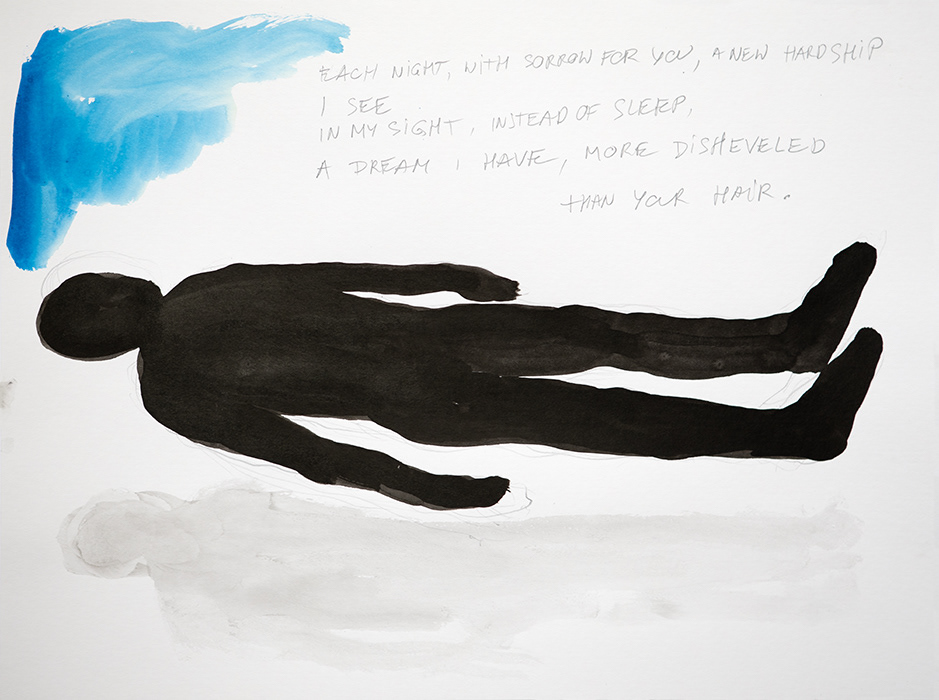 EACH NIGHT, WITH SORROW FOR YOU, A NEW HARDSHIP
I SEE
IN MY SIGHT, INSTEAD OF SLEEP,
A DREAM I HAVE, MORE DISHEVELED
THAN YOUR HAIR.